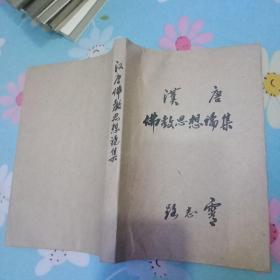 汉唐佛教思想论集
漢唐
佛教思想論集
路志霄